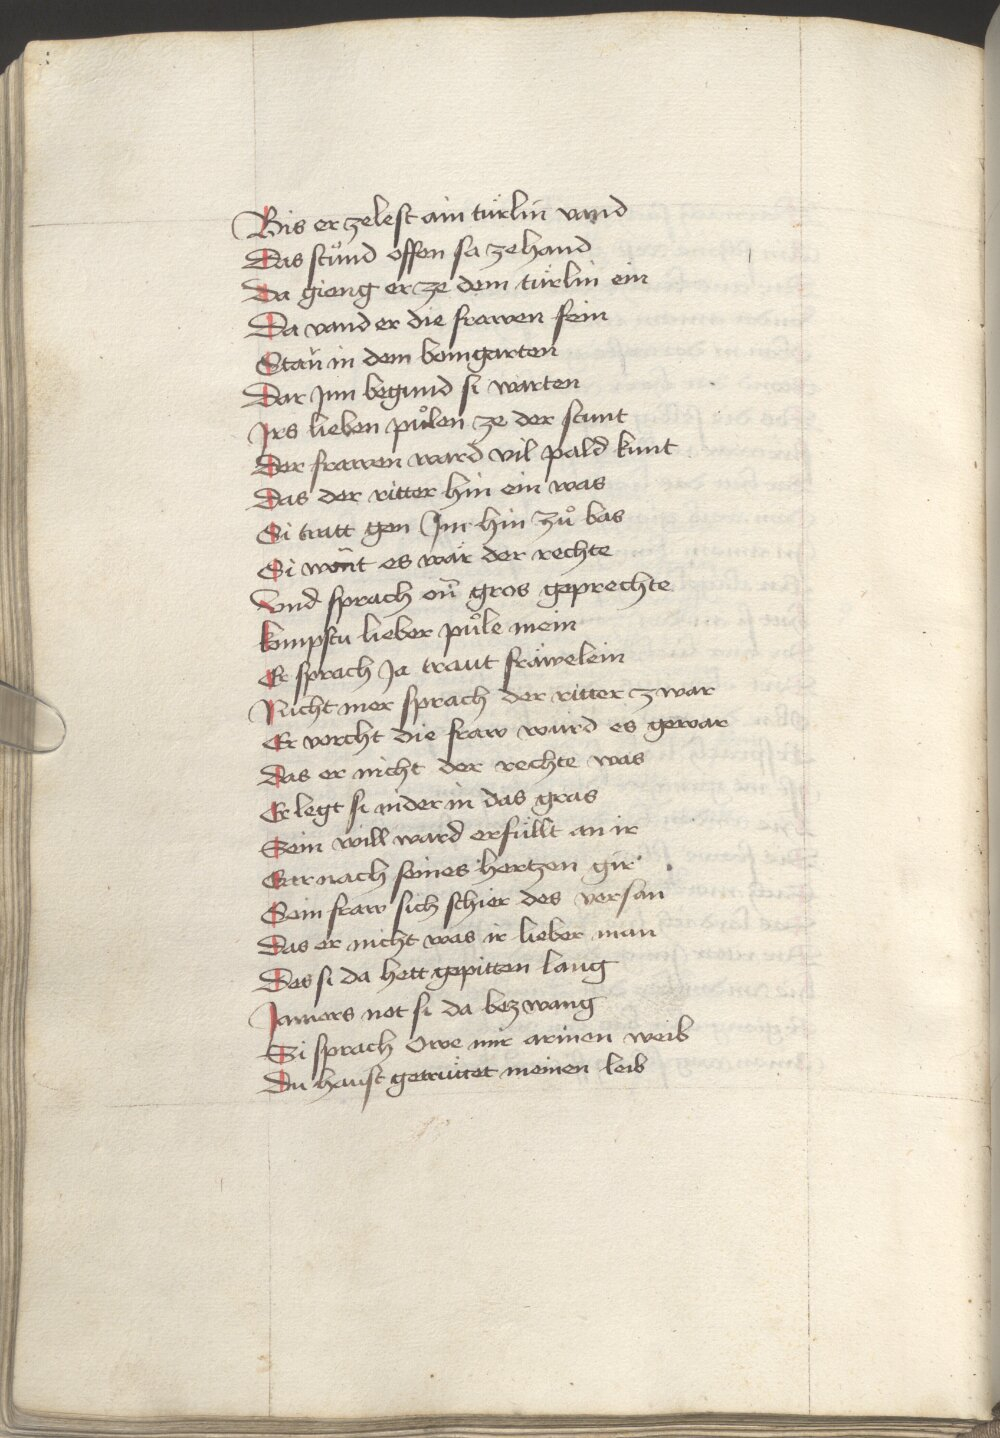 Bis er ze lest ain türlin vand
Das stůnd offen sa ze hand
Da gieng er ze dem türlin ein
Da vand er die frawen fein
Stan̄ in dem bomgarten
Dar Jnn begund si warten
Jrs lieben půlen ze der stunt
Der frawen ward vil pald kunt
Das der ritter hin ein was
Si tratt gen Jm hin zů bas
Si wönt es wär der rechte
Vnd sprach on̄ gros geprechte
kompstu lieber půle mein
Er sprach Ja traut fräwelein
Nicht mer sprach der ritter zwar
Er vorcht die fraw wurd es gewar
Das er nicht der rechte was
Er legt si nider in das gras
Sein will ward erfüllt an ir
Gar nach seines hertzen gir
Sein fraw sich schier des versan
Das er nicht was ir lieber man
Des si da hett gepitten lang
Jamers not si da bezwang
Si sprach Owe mir armen weib
Du haust getrüttet meinen leib